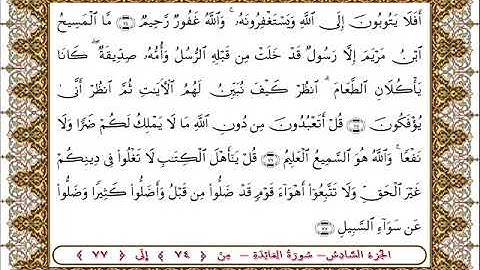 أَفَلَا يَتُوبُونَ إِلَى ٱللَّهِ وَيَسْتَغْفِرُونَهُۥ ۚ وَٱللَّهُ غَفُورٌ رَّحِيمٌ ﴿٧٤﴾ مَّا ٱلْمَسِيحُ
ٱبْنُ مَرْيَمَ إِلَّا رَسُولٌ قَدْ خَلَتْ مِن قَبْلِهِ ٱلرُّسُلُ وَأُمُّهُۥ صِدِّيقَةٌ ۖ كَانَا
يَأْكُلَانِ ٱلطَّعَامَ ۗ ٱنظُرْ كَيْفَ نُبَيِّنُ لَهُمُ ٱلْءَايَٰتِ ثُمَّ ٱنظُرْ أَنَّىٰ
يُؤْفَكُونَ ﴿٧٥﴾ قُلْ أَتَعْبُدُونَ مِن دُونِ ٱللَّهِ مَا لَا يَمْلِكُ لَكُمْ ضَرًّا وَلَا
نَفْعًا ۚ وَٱللَّهُ هُوَ ٱلسَّمِيعُ ٱلْعَلِيمُ ﴿٧٦﴾ قُلْ يَٰٓأَهْلَ ٱلْكِتَٰبِ لَا تَغْلُوا۟ فِى دِينِكُمْ
غَيْرَ ٱلْحَقِّ وَلَا تَتَّبِعُوٓا۟ أَهْوَآءَ قَوْمٍ قَدْ ضَلُّوا۟ مِن قَبْلُ وَأَضَلُّوا۟ كَثِيرًا وَضَلُّوا۟
عَن سَوَآءِ ٱلسَّبِيلِ ﴿٧٧﴾
الجزء السادس - سورة المائدة - من ﴿ ٧٤ ﴾ إلى ﴿ ٧٧ ﴾